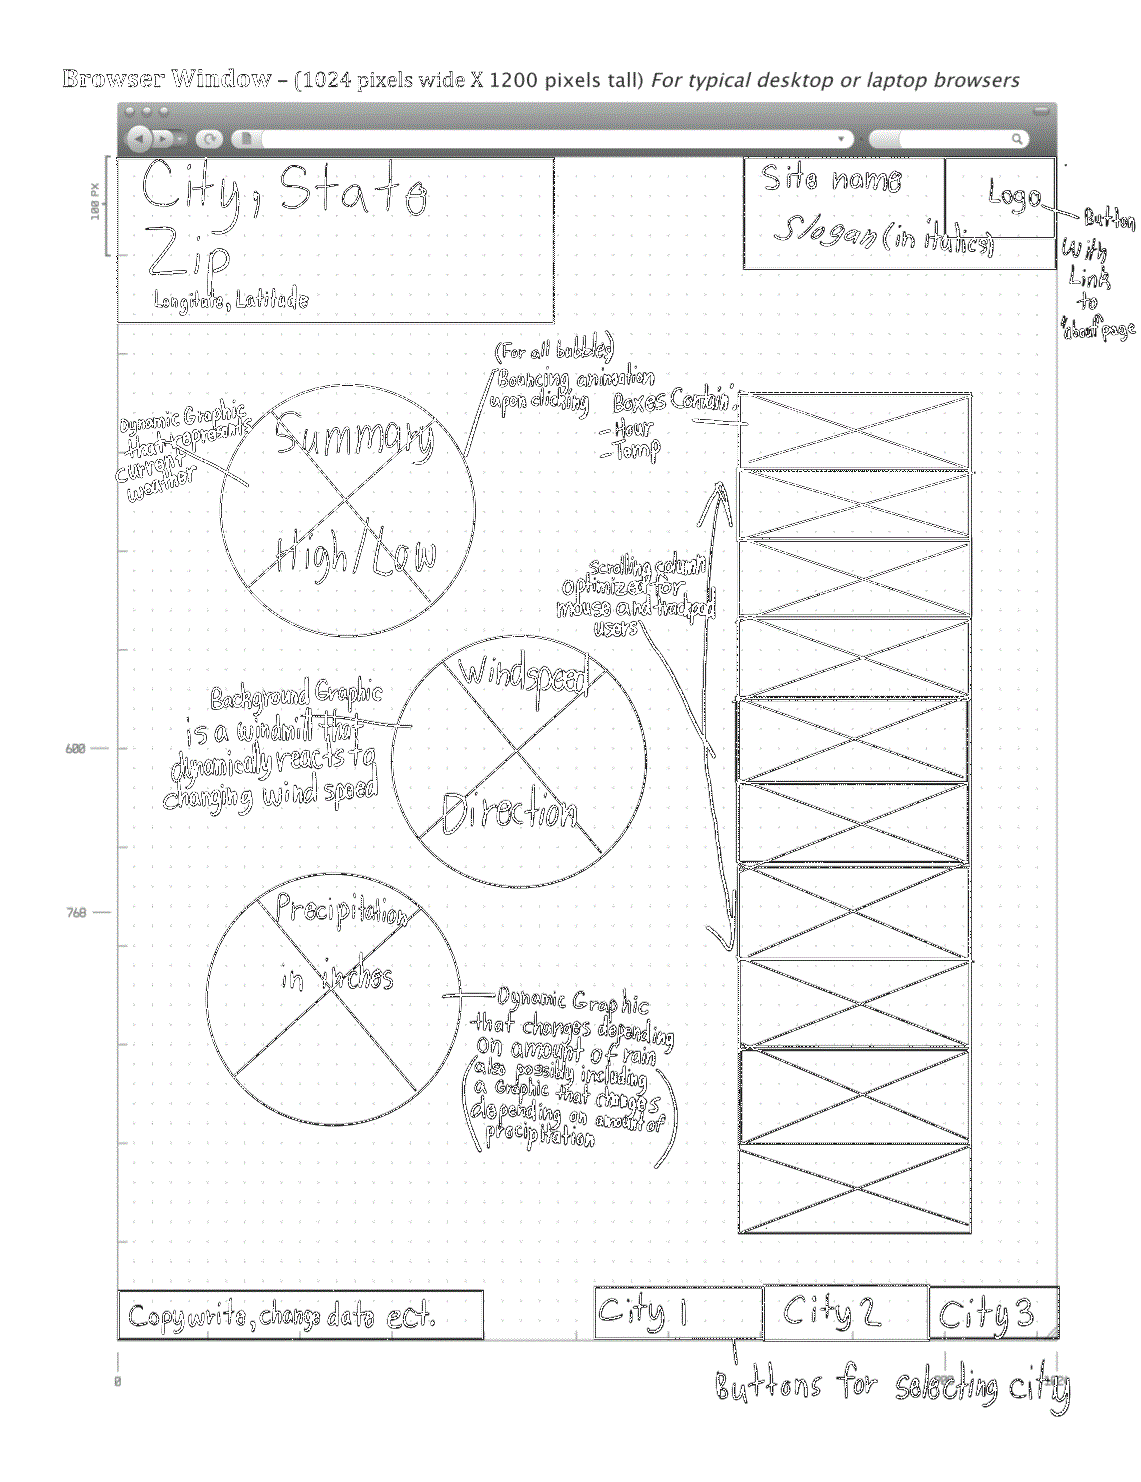 Browser Window – (1024 pixels wide X 1200 pixels tall) For typical desktop or laptop browsers
100 PX
City, State
Zip
Longitute, Latitude
Site name
Slogan (in italics)
Logo
Button
With
Link
to
"about" page
(For all bubbles)
Bouncing animation
upon clicking
Boxes Contain:
- Hour
- Temp
Dynamic Graphic
that represents
current
weather
Summary
High/Low
Scrolling column
optimized for
mouse and trackpad
users
Windspeed
Direction
Background Graphic
is a windmill that
dynamicaly reacts to
changing wind speed
600
768
Precipitation
in inches
Dynamic Graphic
that changes depending
on amount of rain
(also possibly including
a Graphic that changes
depending on amount of
precipitation)
Copywrite, change data ect.
City 1
City 2
City 3
0
Buttons for selecting city